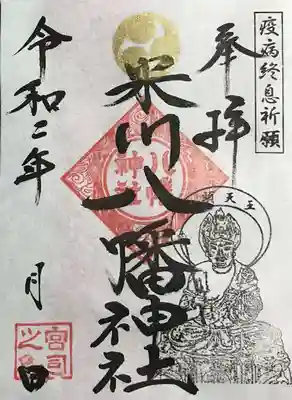 疫病終息祈願
奉拝
米川八幡神社
八幡神社
令和二年
月
日
宮司之印